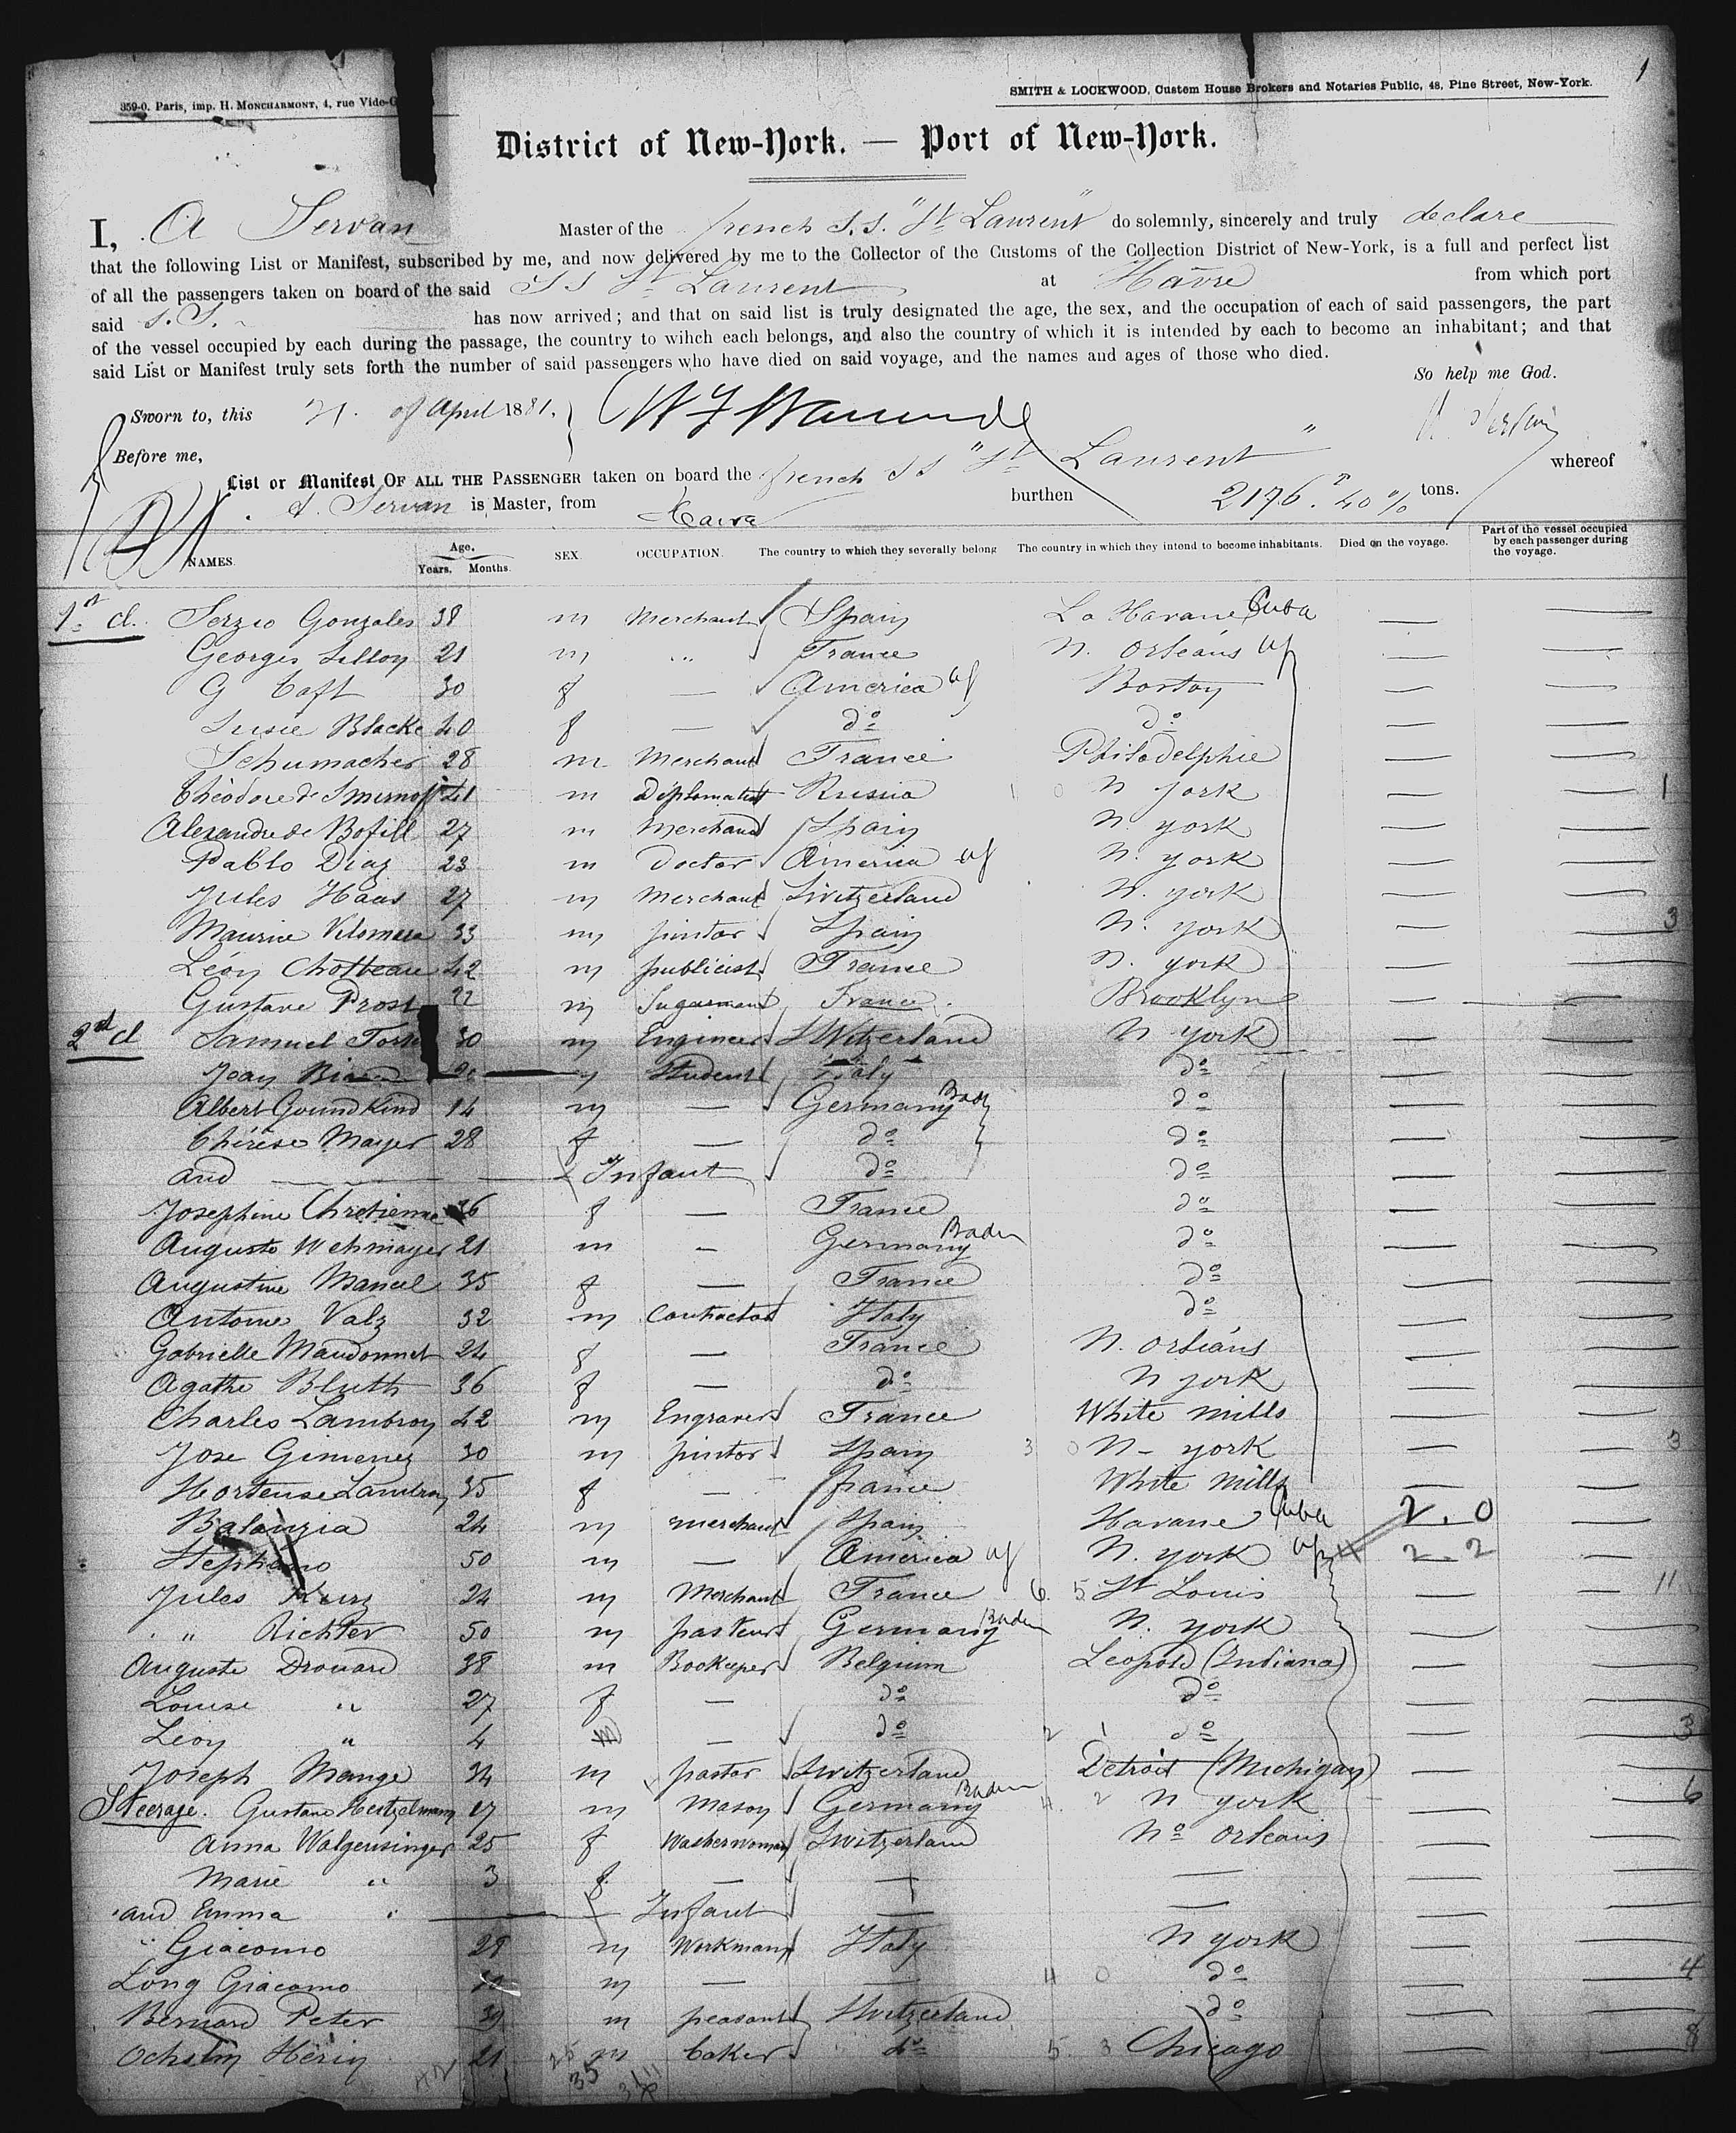 1
359-0. Paris, imp. H. MONCHARMONT, 4, rue Vide-G
SMITH & LOCKWOOD, Custom House Brokers and Notaries Public, 48, Pine Street, New-York.
District of New-York. — Port of New-York.
I, A Servan Master of the french S.S. "St Laurent" do solemnly, sincerely and truly declare
that the following List or Manifest, subscribed by me, and now delivered by me to the Collector of the Customs of the Collection District of New-York, is a full and perfect list
of all the passengers taken on board of the said S S St Laurent at Havre from which port
said S. S. has now arrived; and that on said list is truly designated the age, the sex, and the occupation of each of said passengers, the part
of the vessel occupied by each during the passage, the country to wihch each belongs, and also the country of which it is intended by each to become an inhabitant; and that
said List or Manifest truly sets forth the number of said passengers who have died on said voyage, and the names and ages of those who died.
So help me God.
Sworn to, this 21. of April 1881.
Before me,
List or Manifest OF ALL THE PASSENGER taken on board the french S S "St Laurent" whereof
A. Servan is Master, from Havre burthen 2176. 40 % tons.
NAMES. Age. Years. Months. SEX OCCUPATION. The country to which they severally belong The country in which they intend to become inhabitants. Died on the voyage. Part of the vessel occupied by each passenger during the voyage.
1st cl. Serzio Gonzales 38 m Merchant Spain La Havane Cuba — —
Georges Lilloy 21 m " France N. Orléans — —
G Taft 30 f — America Boston — —
Susie Blacke 40 f — do do — —
Schumacher 28 m Merchant France Philadelphie — —
Théodore de Smirnoff 41 m Diplomatist Russia N york — — 1
Alexandre de Bofill 27 m Merchand Spain N. york — —
Pablo Diaz 23 m Doctor America N. york — —
Jules Haas 27 m Merchant Switzerland N. york — —
Maurice Vilomara 33 m pintor Spain N. york — — 3
Léon Chotteau 42 m publicist France N. york — —
Gustave Prost 22 m France Brooklyn — —
2nd cl Samuel 30 m Engineer Switzerland N york — —
Jean m Student Italy do — —
Albert Goundkind 14 m — Germany Baden do — —
Thérèse Mayer 28 f — do do — —
and — Infant do do — —
Josephine Chretienne 36 f — France do — —
Auguste Wehmayer 21 m — Germany Baden do — —
Augustine Mancel 35 f — France do — —
Antoine Valz 32 m Contractor Italy do — —
Gabrielle Maudonnet 24 f — France N. Orléans — —
Agathe Bluth 36 f — do N york — —
Charles Lambroy 42 m Engraver France White mills — —
Jose Gimenez 30 m pintor Spain 3 0 N- york — — 3
Hortense Lambroy 35 f — france White Mills — —
Balanzia 24 m merchant Spain Havane Cuba 2. 0 —
Stephano 50 m — America N. york 2 - 2 —
Jules Kurz 24 m Merchant France 6. 5 St Louis — — 11
" Richter 50 m pasteur Germany Baden N. york — —
Auguste Drouard 38 m Bookeeper Belgium Leopold (Indiana) — —
Louise " 27 f — do do — —
Léon " 4 m — do 2 1 do — — 3
Joseph Mange 34 m pastor Switzerland Detroit (Michigan) — —
Steerage. Gustave Hertzelmann 17 m Mason Germany Baden 4. 2 N york — — 6
Anna Walgensinger 25 f Washerwoman Switzerland No Orleans — —
Marie " 3 f — — — — —
and Emma " — Infant — — — —
" Giacomo 29 m Workmann Italy N york — —
Long Giacomo m — — 4 0 do — — 4
Bernard Peter 39 m peasant Switzerland do — —
Henry 21 m baker do 5. 3 Chicago — — 8
35